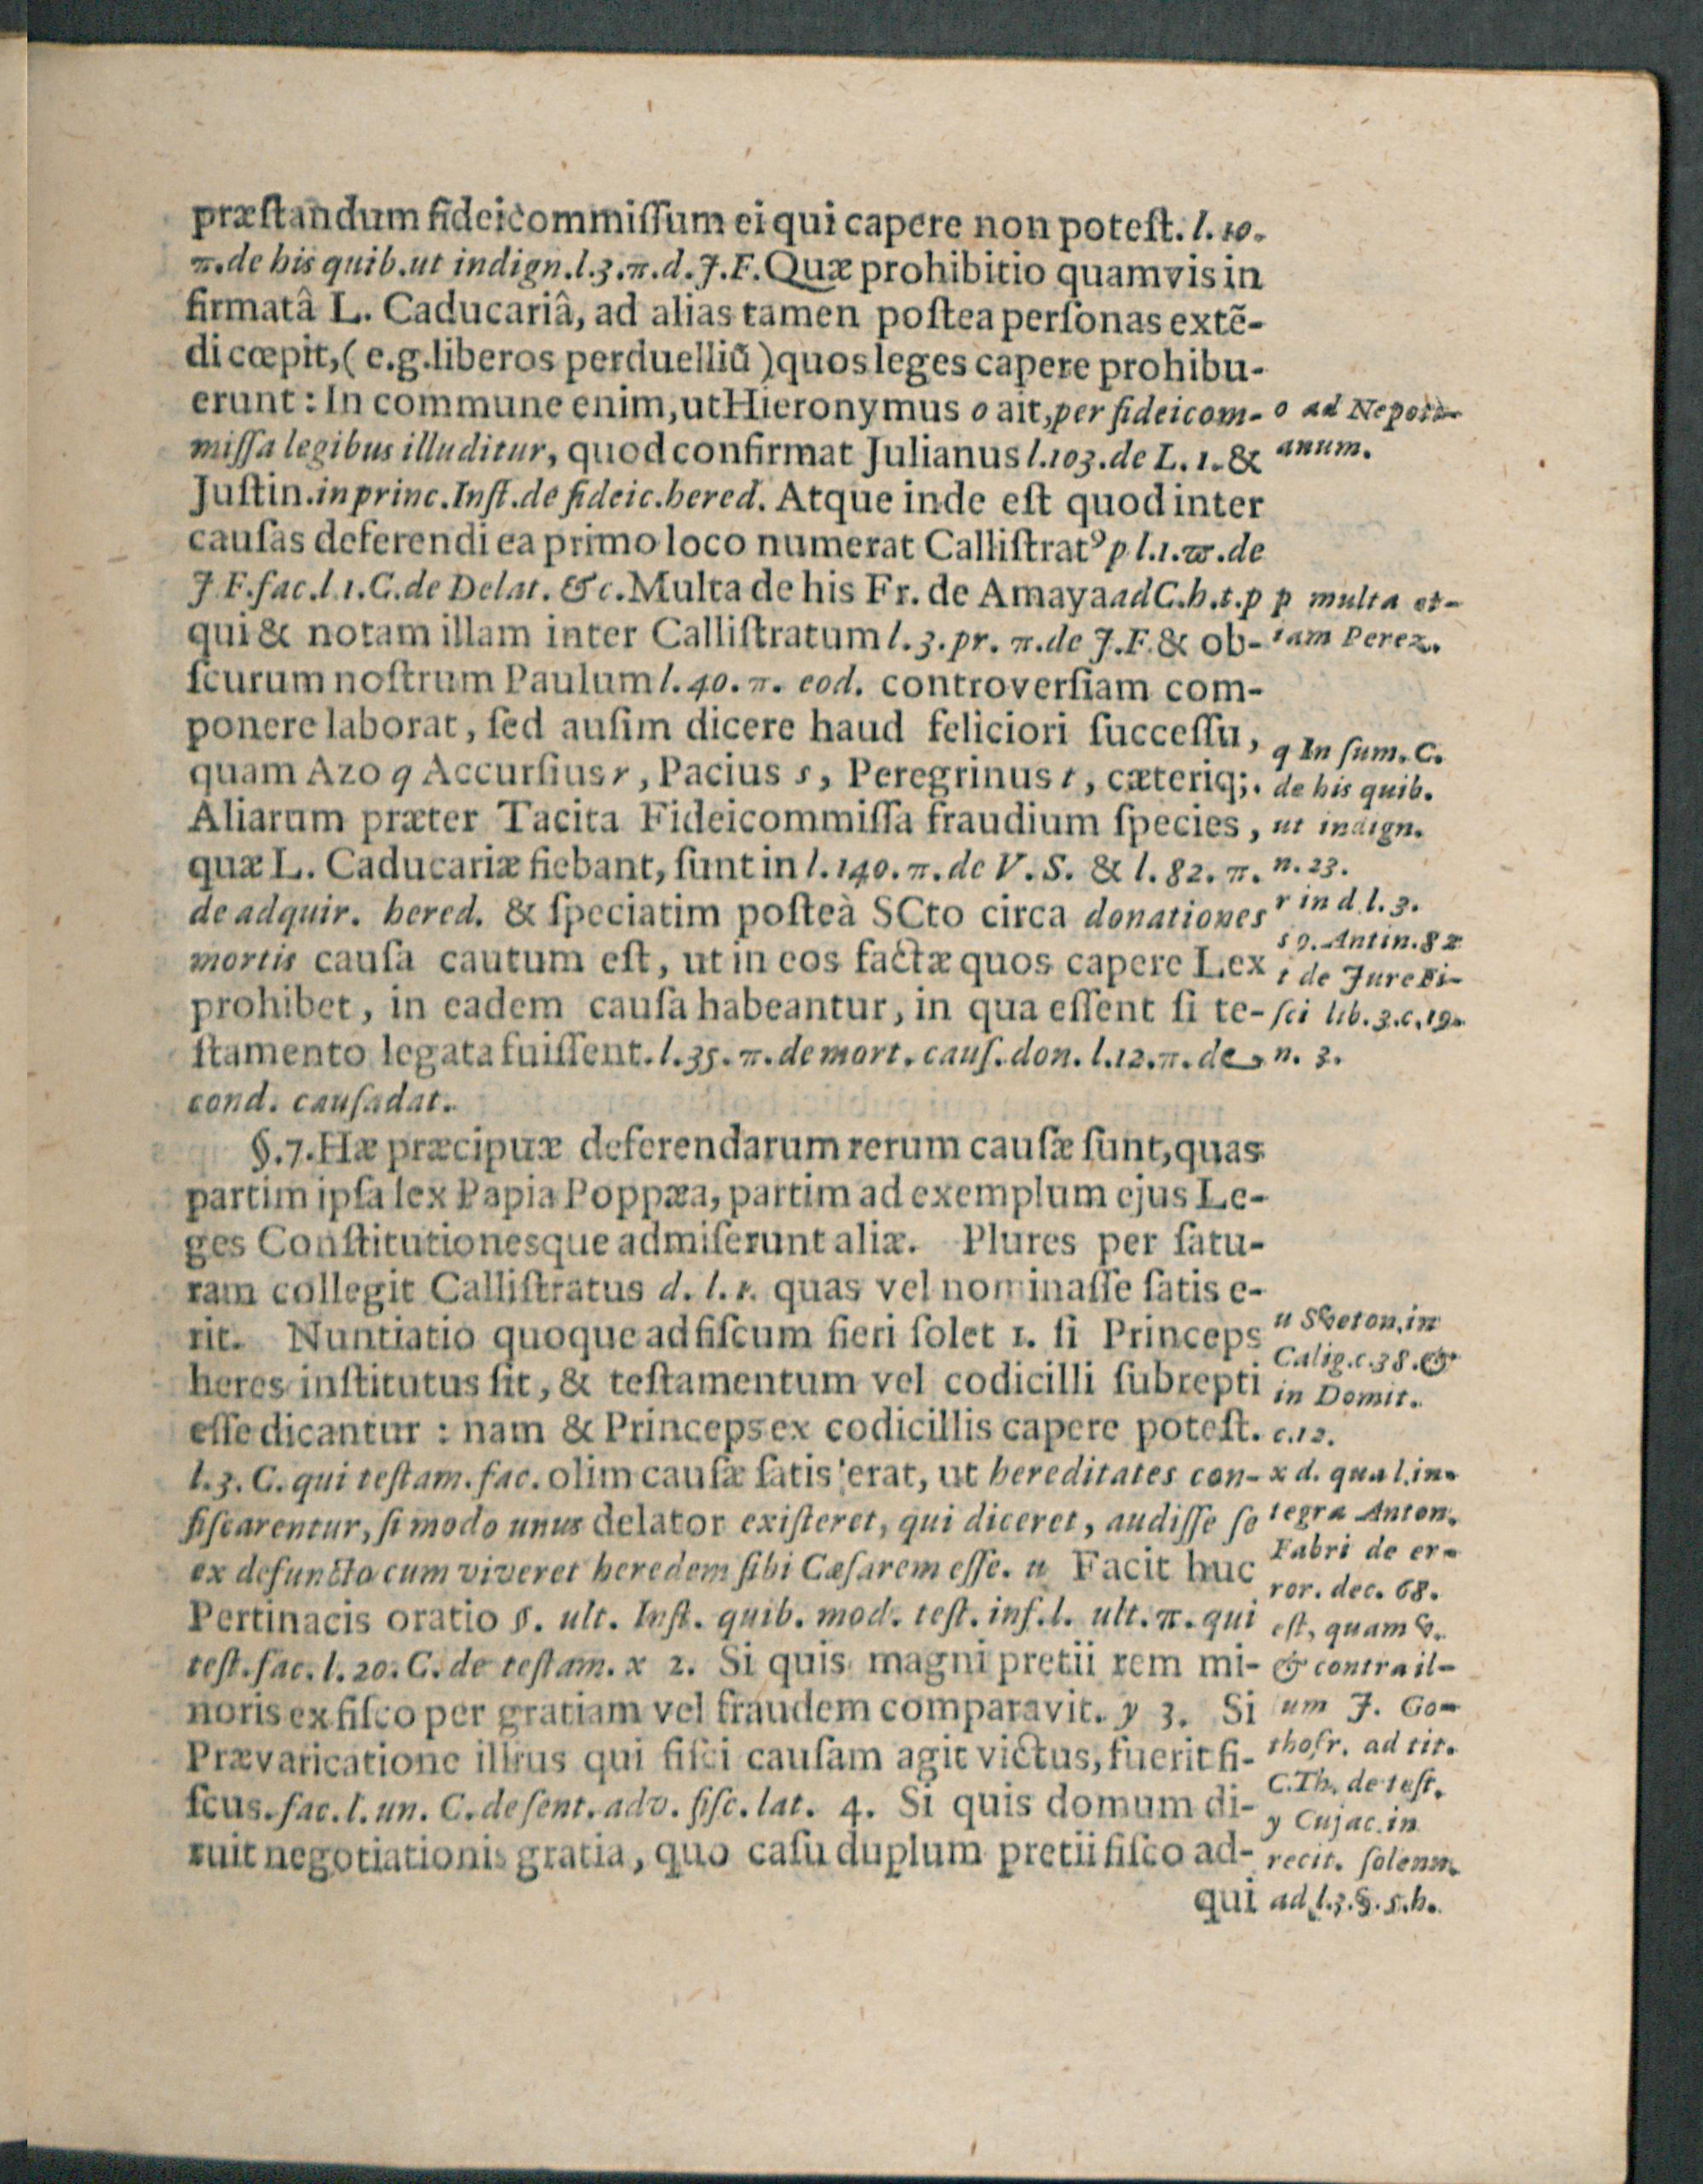 præſtandum fideicommiſſum ei qui capere non poteſt. l. 10.
π. de his quib. ut indign. l. 3. π. d. J. F. Quæ prohibitio quamvis in
firmatâ L. Caducariâ, ad alias tamen poſtea perſonas extẽ-
di cœpit, ( e.g. liberos perduelliũ ) quos leges capere prohibu-
erunt : In commune enim, ut Hieronymus o ait, per fideicom-
miſſa legibus illuditur, quod confirmat Julianus l. 103. de L. 1. &
Juſtin. in princ. Inſt. de fideic. hered. Atque inde eſt quod inter
cauſas deferendi ea primo loco numerat Calliſtratꝰ p l. 1. ϖ. de
J F. fac. l. 1. C. de Delat. &c. Multa de his Fr. de Amaya ad C. h. t. p
qui & notam illam inter Calliſtratum l. 3. pr. π. de J. F. & ob-
ſcurum noſtrum Paulum l. 40. π. eod. controverſiam com-
ponere laborat, ſed auſim dicere haud feliciori ſucceſſu,
quam Azo q Accurſius r, Pacius s, Peregrinus t, cæteriq;.
Aliarum præter Tacita Fideicommiſſa fraudium ſpecies,
quæ L. Caducariæ fiebant, ſunt in l. 140. π. de V. S. & l. 82. π.
de adquir. hered. & ſpeciatim poſteà SCto circa donationes
mortis cauſa cautum eſt, ut in eos factæ quos capere Lex
prohibet, in eadem cauſa habeantur, in qua eſſent ſi te-
ſtamento legata fuiſſent. l. 35. π. de mort. cauſ. don. l. 12. π. de
cond. cauſa dat.
§. 7. Hæ præcipuæ deferendarum rerum cauſæ ſunt, quas
partim ipſa lex Papia Poppæa, partim ad exemplum ejus Le-
ges Conſtitutionesque admiſerunt aliæ. Plures per ſatu-
ram collegit Calliſtratus d. l. 1. quas vel nominaſſe ſatis e-
rit. Nuntiatio quoque ad fiſcum fieri ſolet 1. ſi Princeps
heres inſtitutus ſit, & teſtamentum vel codicilli ſubrepti
eſſe dicantur : nam & Princeps ex codicillis capere poteſt.
l. 3. C. qui teſtam. fac. olim cauſæ ſatis erat, ut hereditates con-
fiſcarentur, ſi modo unus delator exiſteret, qui diceret, audiſſe ſe
ex defuncto cum viveret heredem ſibi Cæſarem eſſe. u Facit huc
Pertinacis oratio §. ult. Inſt. quib. mod. teſt. inf. l. ult. π. qui
teſt. fac. l. 20. C. de teſtam. x 2. Si quis magni pretii rem mi-
noris ex fiſco per gratiam vel fraudem comparavit. y 3. Si
Prævaricatione illius qui fiſci cauſam agit victus, fuerit fi-
ſcus. fac. l. un. C. de ſent. adv. fiſc. lat. 4. Si quis domum di-
ruit negotiationis gratia, quo caſu duplum pretii fiſco ad-
qui
o ad Nepoti-
anum.
p multa et-
iam Perez.
q In ſum. C.
de his quib.
ut indign.
n. 23.
r in d. l. 3.
s 9. Antin. 82
t de Jure Fi-
ſci lib. 3. c. 19.
n. 3.
u Sueton. in
Calig. c. 38. &
in Domit.
c. 12.
x d. qua l. in-
tegra Anton.
Fabri de er-
ror. dec. 68.
eſt, quam v.
& contra il-
um J. Go-
thofr. ad tit.
C. Th. de teſt.
y Cujac. in
recit. ſolenn.
ad l. 3. §. 5. h.